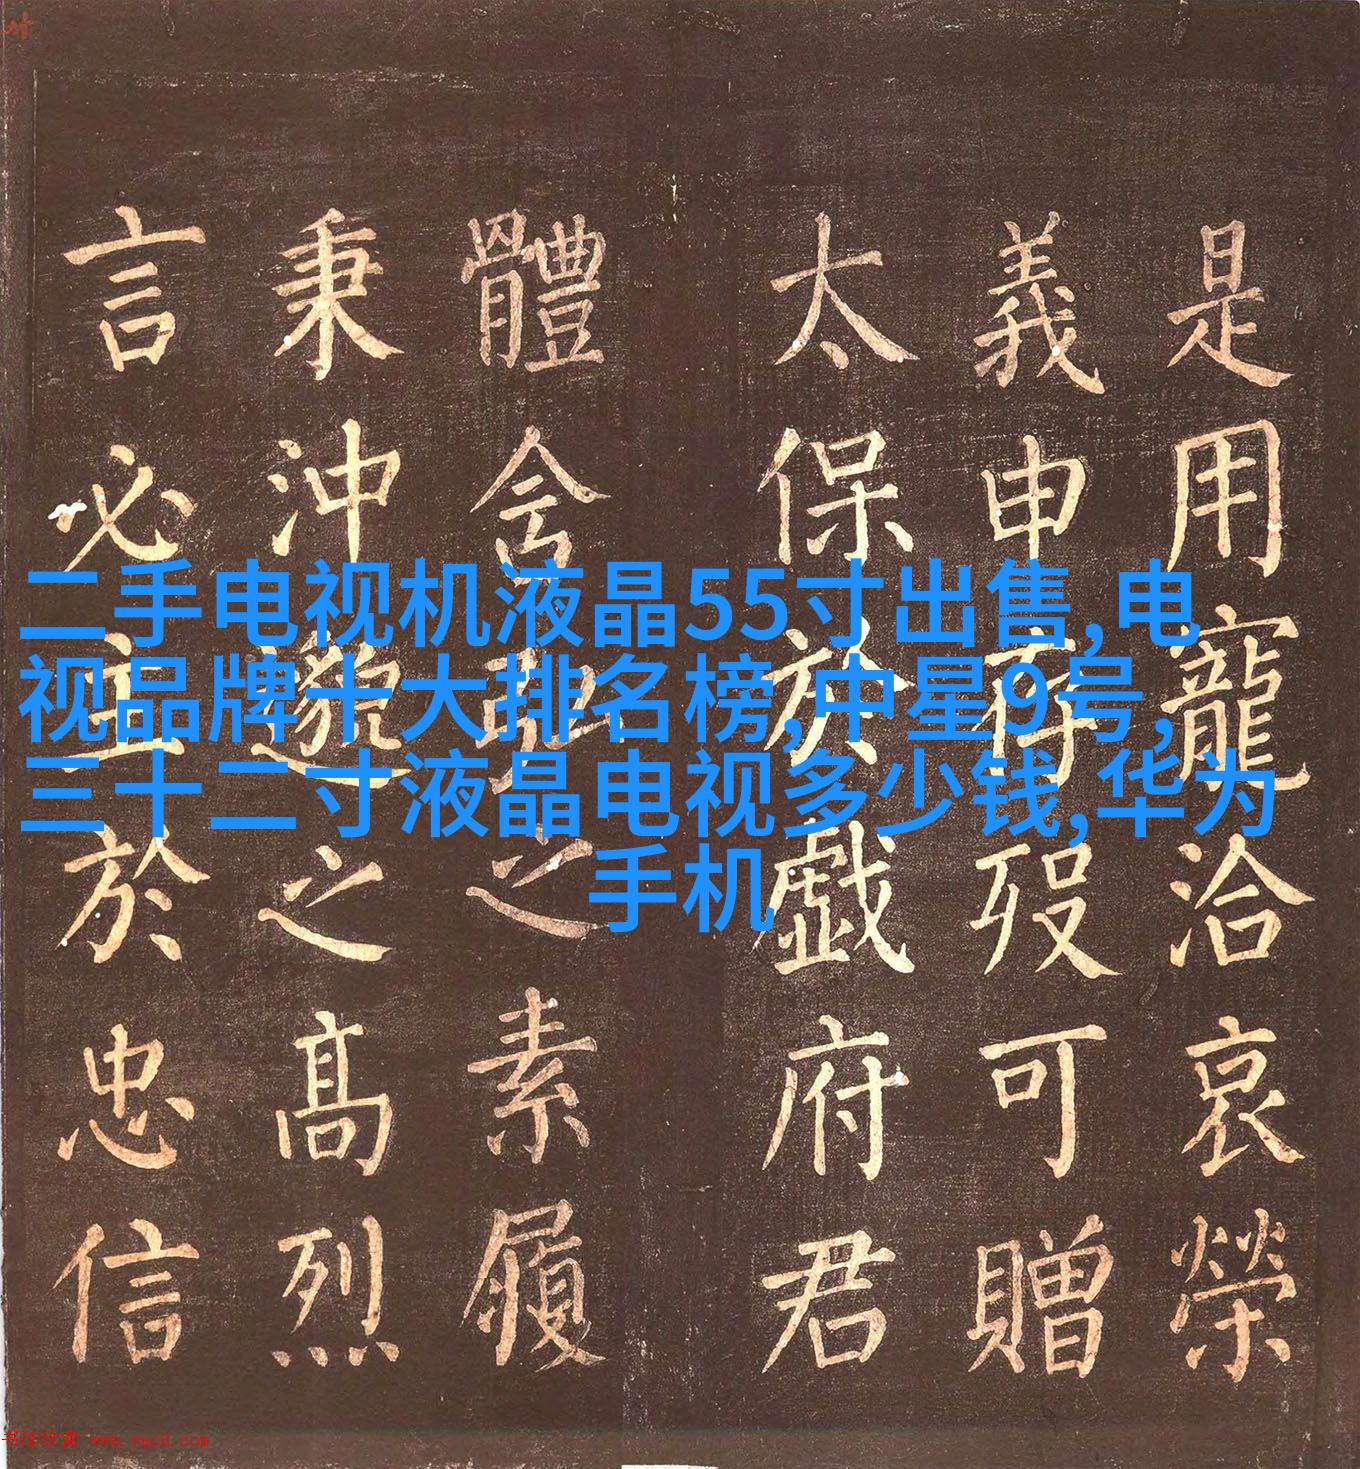 是用寵洽哀榮
義申存歿可贈
太保於戲府君
體含之素履
秉沖邈之髙烈
言必立於忠信
二手电视机液晶55寸出售,电
视品牌十大排名榜,中星9号,
三十二寸液晶电视多少钱,华为
手机
书法欣赏 www.yac8.com